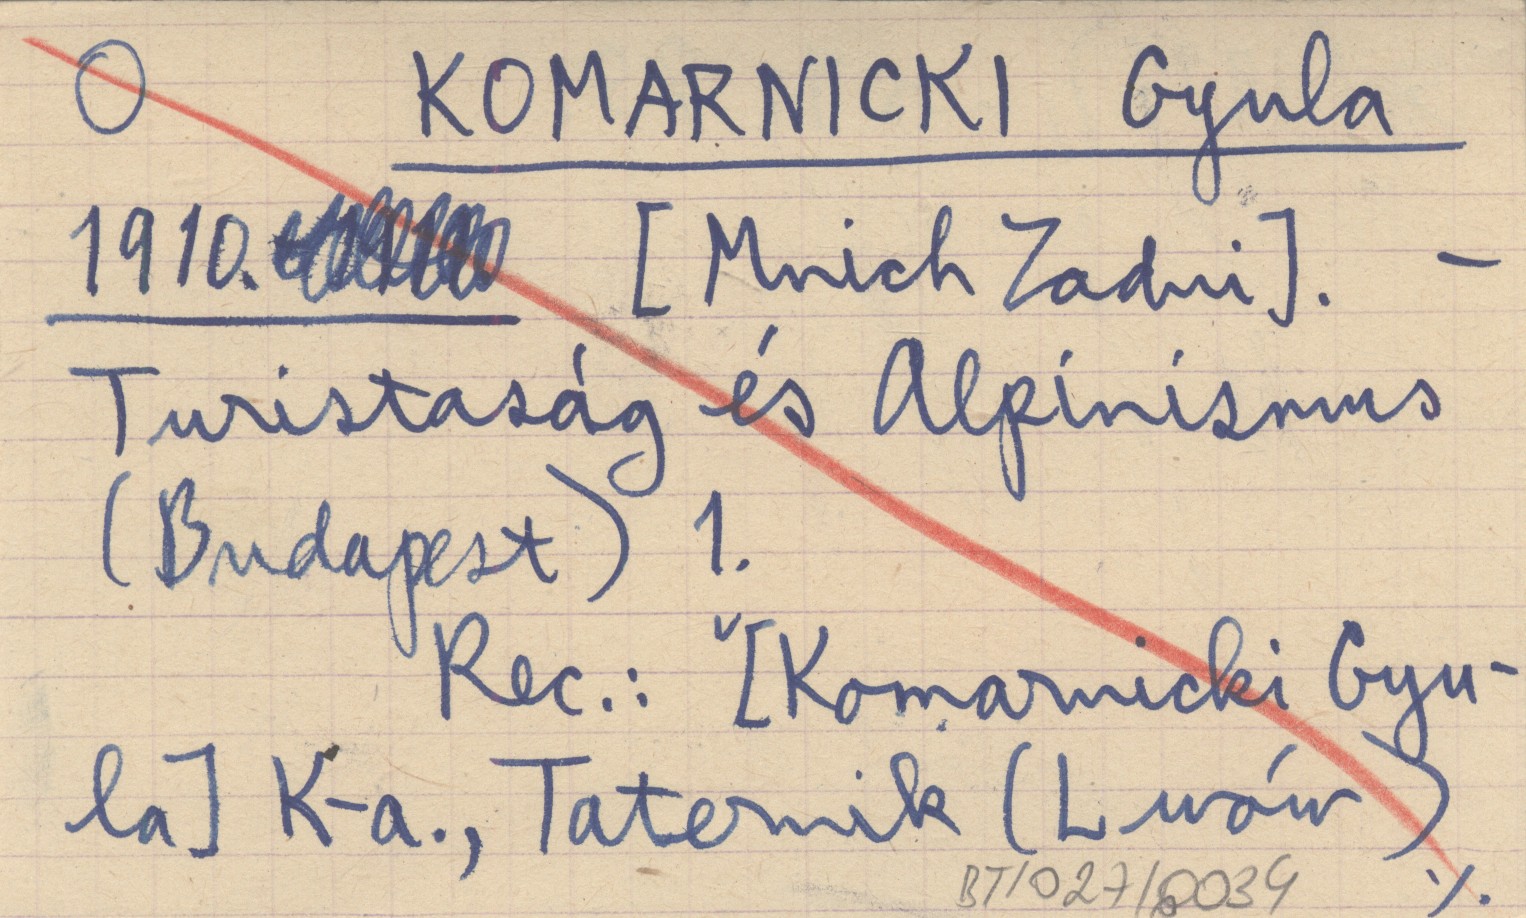 O KOMARNICKI Gyula
1910. [Mnich Zadni]. -
Turistaság és Alpinizmus
(Budapest) 1.
Rec.: [Komarnicki Gyu-
la] K-a., Taternik (Lwów)
BT/027/0034 ./.